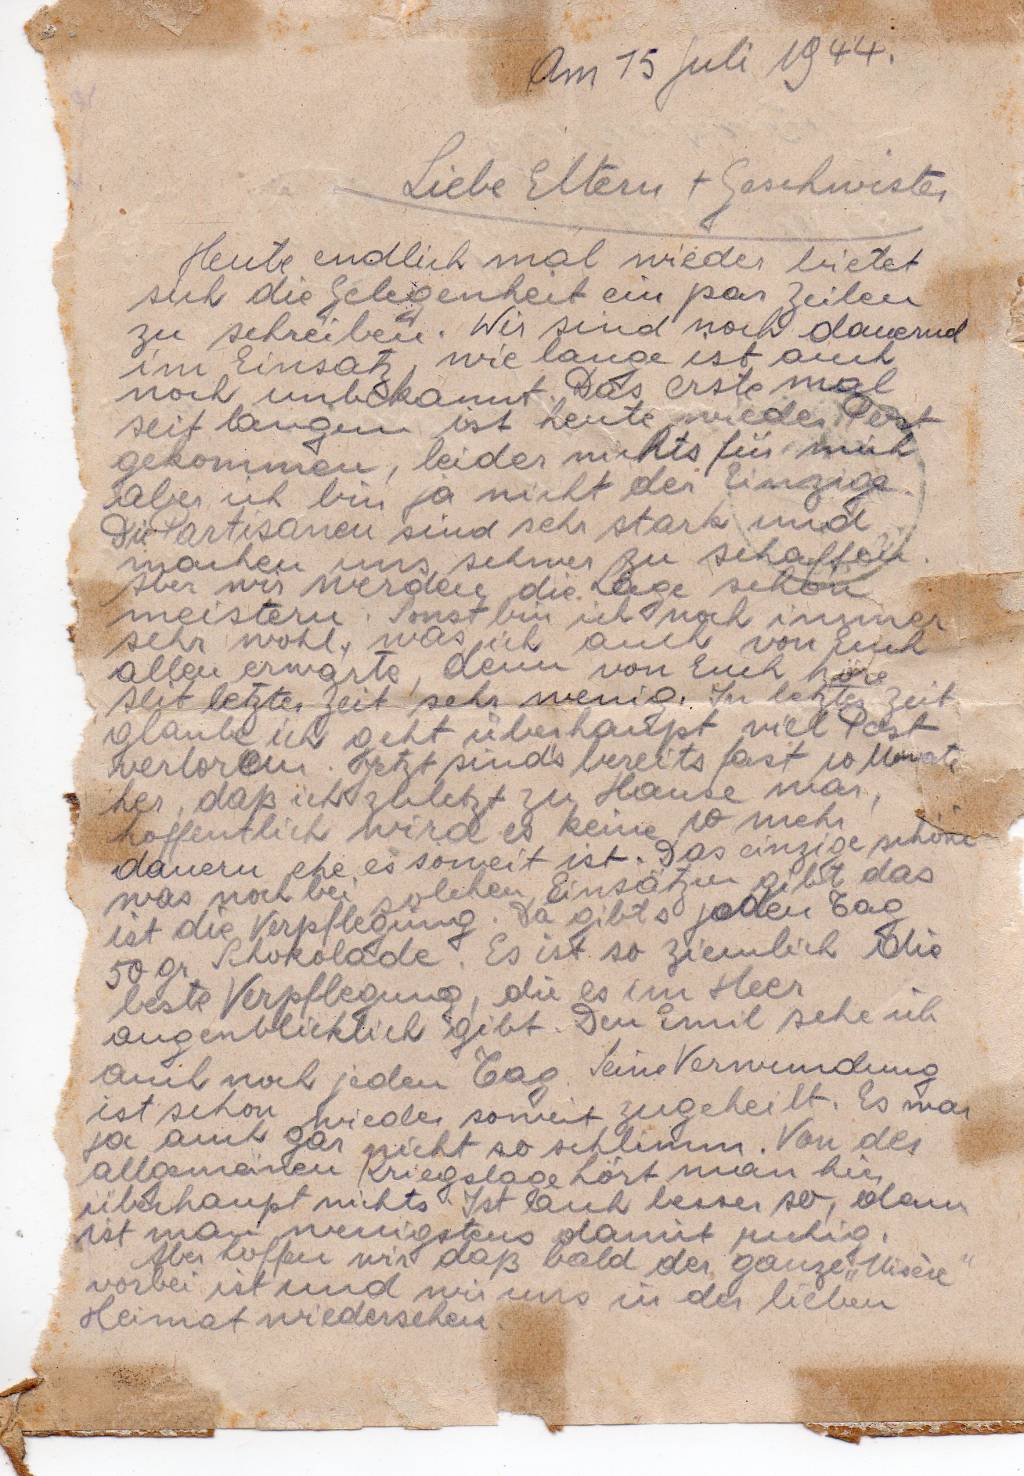 Am 15 Juli 1944.
Liebe Eltern + Geschwister
Heute endlich mal wieder bietet
sich die Gelegenheit ein par Zeilen
zu schreiben. Wir sind noch dauernd
im Einsatz, wie lange ist auch
noch unbekannt. Das erste mal
seit langem ist heute wieder Post
gekommen, leider nichts für mich
aber ich bin ja nicht der Einzige.
Die Partisanen sind sehr stark und
machen uns schwer zu schaffen.
Aber wir werden die Lage schon
meistern. Sonst bin ich noch immer
sehr wohl, was ich auch von Euch
allen erwarte, denn von Euch höre
seit letzter Zeit sehr wenig. In letzter Zeit
glaube ich geht überhaupt viel Post
verloren. Jetzt sind's bereits fast 10 Monate
her, daß ich zuletzt zu Hause war,
hoffentlich wird es keine 10 mehr
dauern ehe es soweit ist. Das einzige schöne
was noch bei solchen Einsätzen gibt das
ist die Verpflegung. Da gibts jeden Tag
50 gr. Schokolade. Es ist so ziemlich die
beste Verpflegung, die es im Heer
augenblicklich gibt. Den Emil sehe ich
auch noch jeden Tag. Seine Verwundung
ist schon wieder soweit zugeheilt. Es war
ja auch gar nicht so schlimm. Von der
allgemeinen Kriegslage hört man hier
überhaupt nichts. Ist auch besser so, dann
ist man wenigstens damit ruhig.
Aber hoffen wir daß bald der ganze „Misère"
vorbei ist und wir uns in der lieben
Heimat wiedersehen.